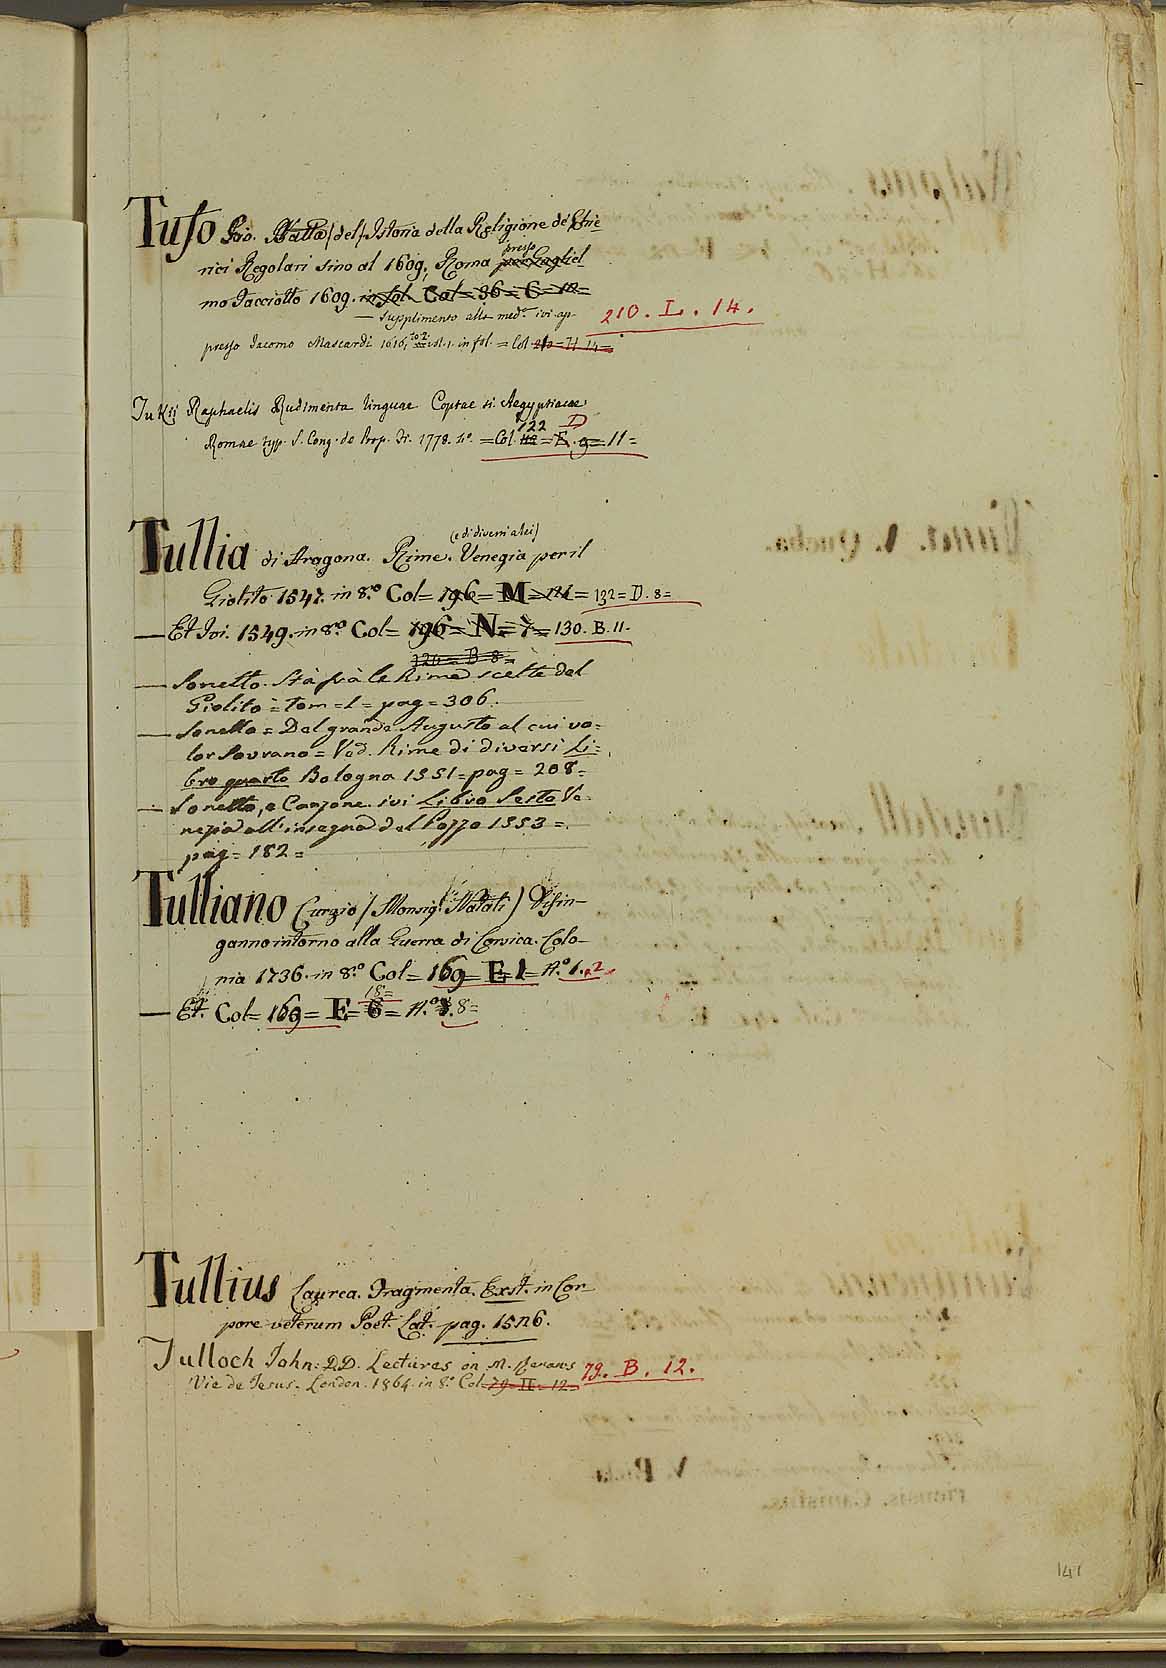 Tufo Gio. Batta /del/ Istoria della Religione de' Chie=
rici Regolari sino al 1609. Roma presso per Gugliel=
mo Facciotto 1609. in fol. Col = 36 = C = 12 =
— Supplimento alla med.ª ivi ap-
210. L. 14.
presso Giacomo Mascardi 1616, to. 2. vol. 1. in fol. = Col. 210 = H 14 =
Tukii Raphaelis Rudimenta linguae Coptae si. Aegyptiacae
122 D
Romae typ. S. Cong. de Prop. Fi. 1778. 4º. = Col. = E. 9 = 11 =
(e di diversi altri)
Tullia di Aragona. Rime. Venegia per il
Giolito 1547. in 8.º Col = 196 = M = 121 = 132 = D. 8 =
— Et Ivi. 1549. in 8.º Col = 196 = N = 7 = 130. B. 11.
126 = B 8 =
— Sonetto. Stà frà le Rime scelte dal
Giolito = tom = 1 = pag = 306.
— Sonetto = Dal grande Augusto al cui va=
lor Sovrano = Ved. Rime di diversi Li=
bro quarto Bologna 1551 = pag = 208 =
— Sonetto, e Canzone. ivi Libro Sesto Ve=
nezia all' insegna del Pozzo 1553 =
pag = 182 =
Tulliano Curzio / Monsig.r Natali / Disin-
ganno intorno alla Guerra di Corsica. Colo-
nia 1736. in 8.º Col = 169 = E 1 = N.º 1. 2
18 =
— Et. Col = 169 = E = 6 = N.º 8 =
Tullius Laurea. Fragmenta. Exst. in Cor-
pore veterum Poet. Lat. pag. 1526.
Tulloch John: D.D. Lectures on M. Renan's 79. B. 12.
Vie de Jesus. London. 1864. in 8.º Col 79. II. 12
V. Queba.
141